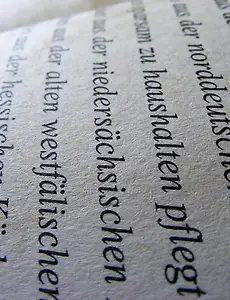 aus der norddeutschen
sam zu haushalten pflegt
aus der niedersächsischen
aus der alten westfälischen
aus der hessischen